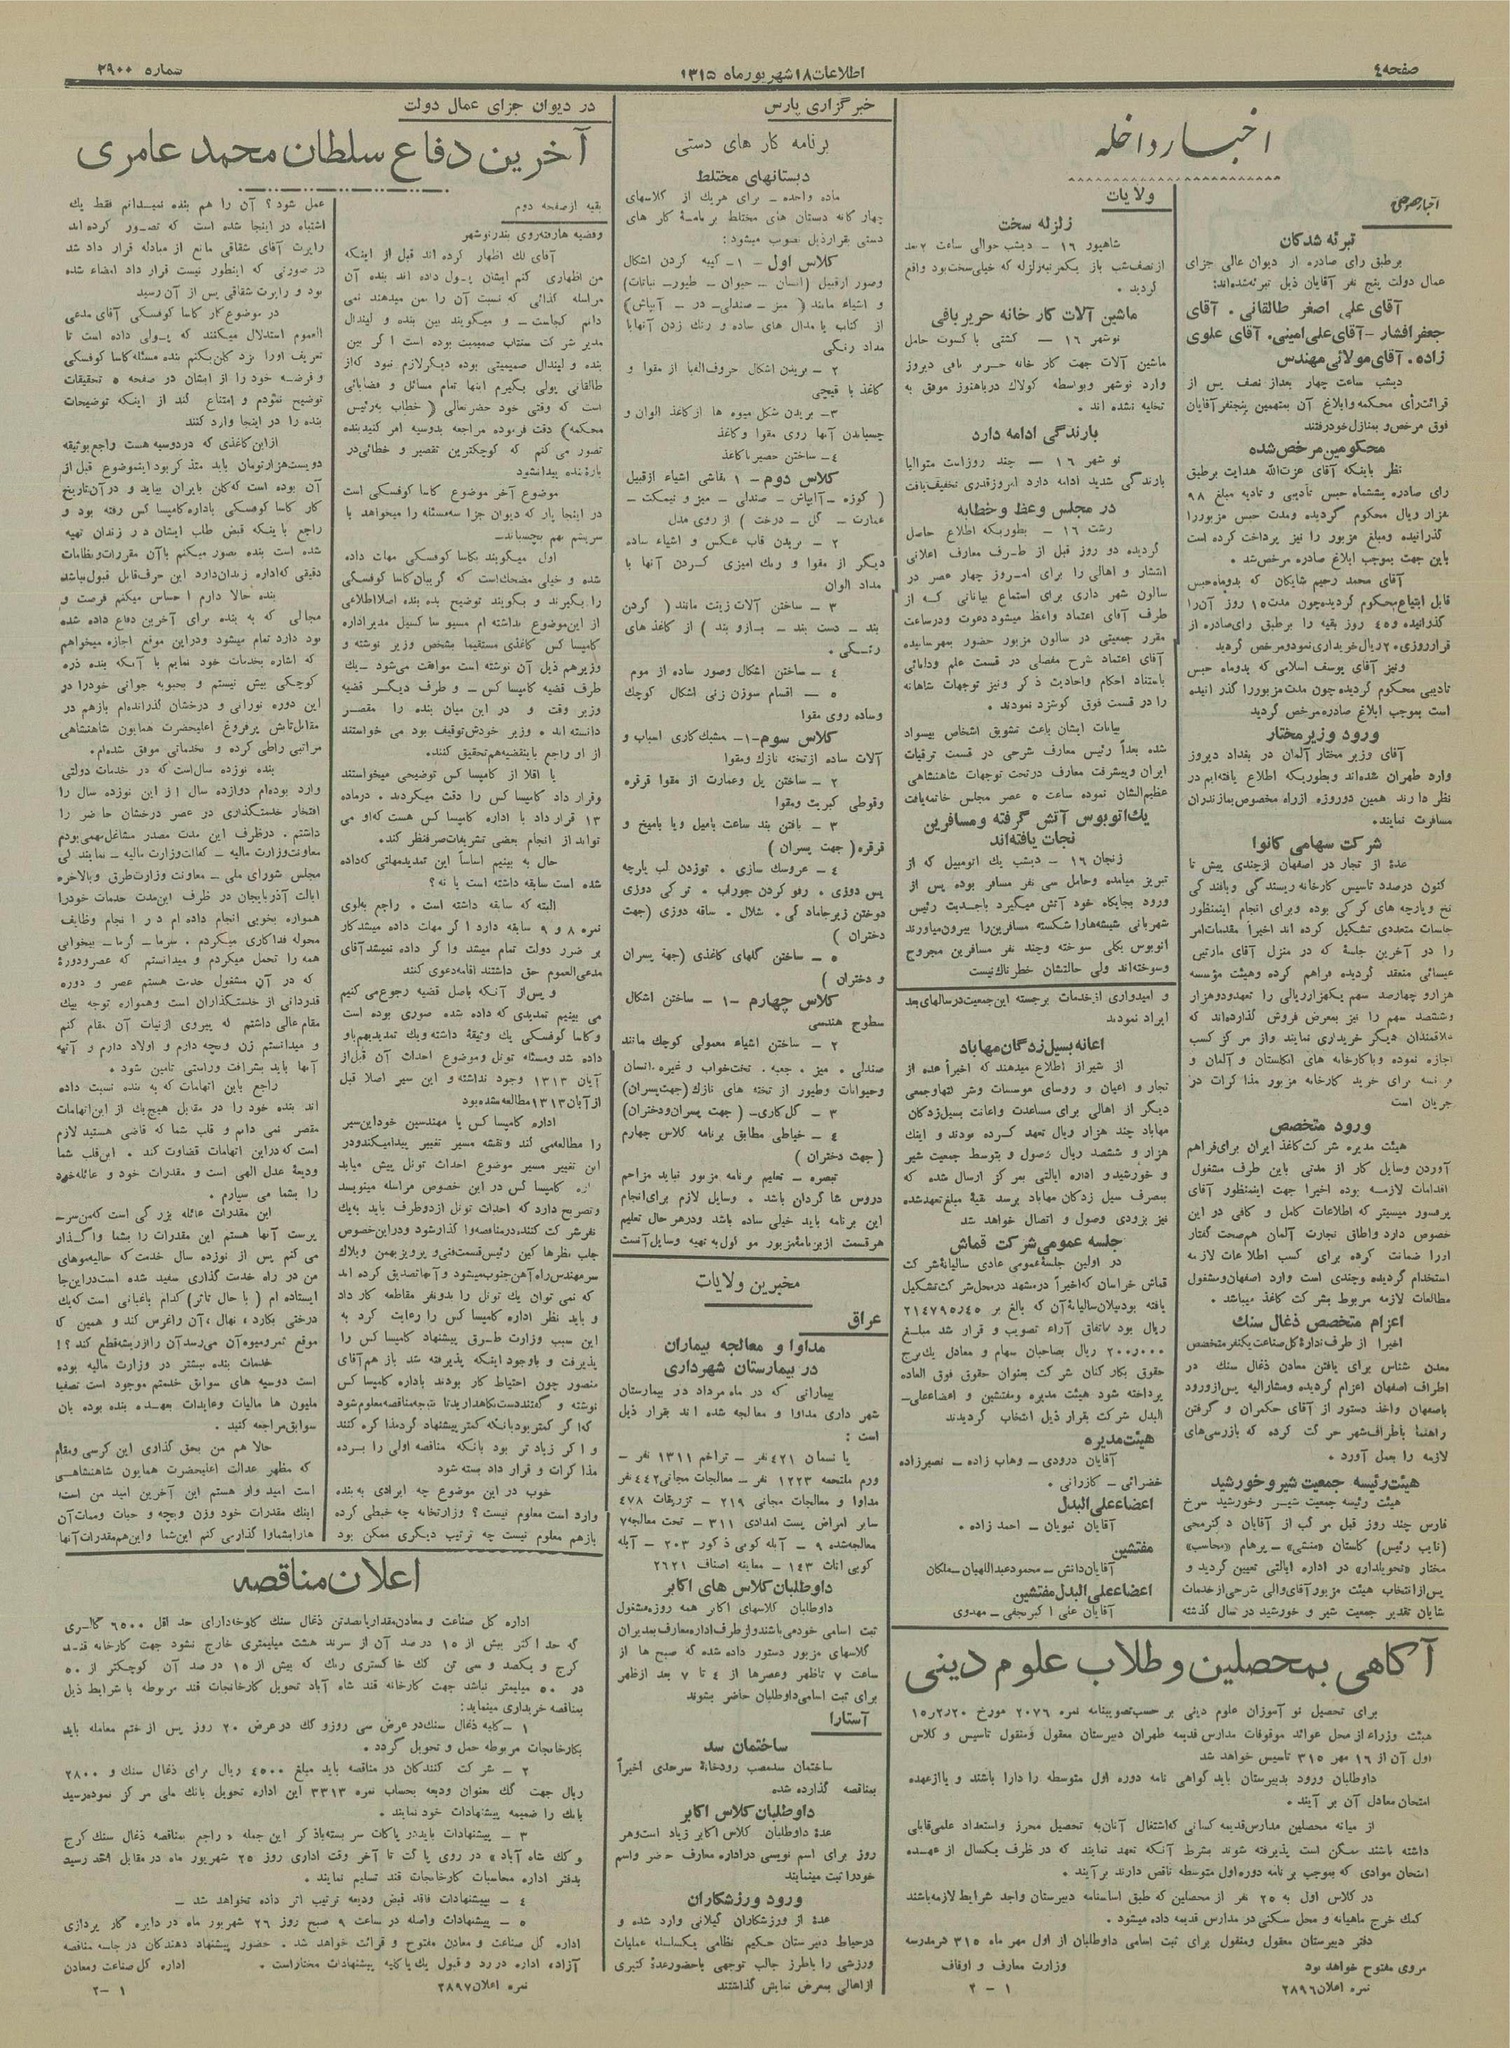 صفحه ٤
اطلاعات ۱۸ شهریور ماه ۱۳۱۵
شماره ۲۹۰۰
اخبار داخله
تبرئه شدگان
برطبق رای صادره از دیوان عالی جزای
عمال دولت پنج نفر آقایان ذیل تبرئه شده‌اند:
آقای علی اصغر طالقانی. آقای
جعفر افشار – آقای علی امینی. آقای علوی
زاده. آقای مولائی مهندس
دیشب ساعت چهار بعداز نصف پس از
قرائت رأی محکمه وابلاغ آن بمتهمین پنجنفر آقایان
فوق مرخص و بمنازل خود رفتند
محکومین مرخص شده
نظر باینکه آقای عزت‌الله هدایت برطبق
رای صادره بششماه حبس تأدیبی و تادیه مبلغ ۹۸
هزار ریال محکوم گردیده ومدت حبس مزبور را
گذرانیده ومبلغ مزبور را نیز پرداخت کرده است
باین جهت بموجب ابلاغ صادره مرخص شد.
آقای محمد رحیم شایکان که بدوماه حبس
قابل ابتیاع محکوم گردیده چون مدت ۱۵ روز آن را
گذرانیده و٤٥ روز بقیه را برطبق رای صادره از
قرار روزی ۲۰ ریال خریداری نمود ومرخص گردید
ونیز آقای یوسف اسلامی که بدوماه حبس
تادیبی محکوم گردیده چون مدت مزبور را گذرانیده
است بموجب ابلاغ صادره مرخص گردید
ورود وزیر مختار
آقای وزیر مختار آلمان در بغداد دیروز
وارد طهران شده‌اند وبطوریکه اطلاع یافته‌ایم در
نظر دارند همین دوروزه ازراه مخصوص بمازندران
مسافرت نمایند.
شرکت سهامی کانوا
عدهٔ از تجار در اصفهان ازچندی پیش تا
کنون درصدد تاسیس کارخانه ریسندگی وبافندگی
نخ وپارچه های کرکی بوده وبرای انجام اینمنظور
جلسات متعددی تشکیل کرده اند اخیراً مقدمات امر
را دو آخرین جلسهٔ که در منزل آقای مارتین
عیسائی منعقد گردیده فراهم کرده وهیئت مؤسسه
هزار و چهارصد سهم یکهزار ریالی را تعهد ودوهزار
وششصد سهم را نیز بمعرض فروش گذارده‌اند که
علاقمندان دیگر خریداری نمایند واز مرکز کسب
اجازه نموده وباکارخانه های انگلستان و آلمان و
فرانسه برای خرید کارخانه مزبور مذاکرات در
جریان است
ورود متخصص
هیئت مدیره شرکت کاغذ ایران برای فراهم
آوردن وسایل کار از مدتی باین طرف مشغول
اقدامات لازمه بوده اخیرا جهت اینمنظور آقای
پرفسور میسیتر که اطلاعات کامل و کافی در این
خصوص دارد واطاق تجارت آلمان هم صحت گفتار
اورا ضمانت کرده برای کسب اطلاعات لازمه
استخدام گردیده وچندی است وارد اصفهان ومشغول
مطالعات لازمه مربوط بشرکت کاغذ میباشد.
اعزام متخصص ذغال سنك
اخیرا از طرف ادارهٔ کل صناعت یکنفر متخصص
معدن شناس برای یافتن معادن ذغال سنك در
اطراف اصفهان اعزام گردیده ومشارالیه پس‌از ورود
باصفهان واخذ دستور از آقای حکمران و گرفتن
راهنما باطراف شهر حرکت کرده که بازرسی‌های
لازمه را بعمل آورد.
هیئت رئیسه جمعیت شیر و خورشید
هیئت رئیسه جمعیت شیر وخورشید سرخ
فارس چند روز قبل مرکب از آقایان دکتر محبی
(نایب رئیس) کاستان «منشی» – پرهام «محاسب»
مختار «تحویلدار» در اداره ایالتی تعیین گردید و
پس از انتخاب هیئت مزبور آقای والی شرحی از خدمات
شایان تقدیر جمعیت شیر و خورشید در سال گذشته
ولایات
زلزله سخت
شاهپور ۱٦ – دیشب حوالی ساعت ۲ بعد
از نصف شب باز یکمرتبه زلزله که خیلی سخت بود واقع
گردید.
ماشین آلات کارخانه حریر بافی
نوشهر ۱٦ – کشتی باکسوت حامل
ماشین آلات جهت کارخانه حریر بافی دیروز
وارد نوشهر وبواسطه کولاك دریا هنوز موفق به
تخلیه نشده اند.
بارندگی ادامه دارد
نوشهر ۱٦ – چند روزاست متوالیا
بارندگی شدید ادامه دارد امروز قدری تخفیف یافت
در مجلس وعظ و خطابه
رشت ۱٦ – بطوریکه اطلاع حاصل
گردیده دو روز قبل از طرف معارف اعلانی
انتشار و اهالی را برای امروز چهار عصر در
سالون شهرداری برای استماع بیاناتی که از
طرف آقای اعتماد واعظ میشود دعوت ودرساعت
مقرر جمعیتی در سالون مزبور حضور بهمرسانیده
آقای اعتماد شرح مفصلی در قسمت علم ودانائی
باستناد احکام واحادیث ذکر ونیز توجهات شاهانه
را در قسمت فوق گوشزد نمودند.
بیانات ایشان باعث تشویق اشخاص بیسواد
شده بعداً رئیس معارف شرحی در قسمت ترقیات
ایران وپیشرفت معارف درتحت توجهات شاهنشاهی
عظیم‌الشان نموده ساعت ۵ عصر مجلس خاتمه یافت
یك اتوبوس آتش گرفته و مسافرین
نجات یافته‌اند
زنجان ۱٦ – دیشب یك اتومبیل که از
تبریز میامده وحامل سی نفر مسافر بوده پس از
ورود بجایگاه خود آتش میگیرد باجدیت رئیس
شهربانی شیشه‌ها را شکسته مسافرین را بیرون میاورند
اتوبوس بکلی سوخته وچند نفر مسافرین مجروح
وسوخته‌اند ولی حالتشان خطرناك نیست
و امیدواری از خدمات برجسته این جمعیت درسالهای بعد
ایراد نمودند
اعانه بسیل زدگان مهاباد
از شیراز اطلاع میدهند که اخیراً عده از
تجار و اعیان و روسای موسسات وشرکتها وجمعی
دیگر از اهالی برای مساعدت واعانت بسیل زدگان
مهاباد چند هزار ریال تعهد کرده بودند و اینك
هزار و ششصد ریال وصول و بتوسط جمعیت شیر
و خورشید و اداره ایالتی بمرکز ارسال شده که
بمصرف سیل زدگان مهاباد برسد بقیهٔ مبلغ تعهد شده
نیز بزودی وصول و اتصال خواهد شد
جلسه عمومی شرکت قماش
در اولین جلسهٔ عمومی عادی سالیانهٔ شرکت
قماش خراسان که اخیراً در مشهد در محل شرکت تشکیل
یافته بود بیلان سالیانهٔ آن که بالغ بر ۲۱٤۷۹۵ر٤۵
ریال بود باتفاق آراء تصویب و قرار شد مبلغ
۲۰۰ر۰۰۰ ریال بصاحبان سهام و معادل یك برج
حقوق بکارکنان شرکت بعنوان حقوق فوق العاده
پرداخته شود هیئت مدیره ومفتشین و اعضاء علی‌
البدل شرکت بقرار ذیل انتخاب گردیدند
هیئت مدیره
آقایان درودی – وهاب زاده – نصیرزاده
خضرائی – کازرانی.
اعضاء علی البدل
آقایان نبویان – احمد زاده.
مفتشین
آقایان دانش – محمود عبداللهیان – ملکان
اعضاء علی البدل مفتشین
آقایان علی اکبر نجفی – مهدوی
آگاهی بمحصلین و طلاب علوم دینی
برای تحصیل نو آموزان علوم دینی بر حسب تصویبنامه نمره ۲۰۷٦ مورخ ۱۵٫۲٫۲۰
هیئت وزراء از محل عوائد موقوفات مدارس قدیمه طهران دبیرستان معقول ومنقول تاسیس و کلاس
اول آن از ۱٦ مهر ۳۱۵ تاسیس خواهد شد
داوطلبان ورود بدبیرستان باید گواهی نامه دوره اول متوسطه را دارا باشند و یاازعهده
امتحان معادل آن بر آیند.
از میانه محصلین مدارس قدیمه کسانی که اشتغال آنان به تحصیل محرز واستعداد علمی قابلی
داشته باشند ممکن است پذیرفته شوند بشرط آنکه تعهد نمایند که در ظرف یکسال از عهده
امتحان موادی که بموجب برنامه دوره اول متوسطه ناقص دارند برآیند.
در کلاس اول به ۲۵ نفر از محصلین که طبق اساسنامه دبیرستان واجد شرایط لازمه باشند
کمك خرج ماهیانه و محل سکنی در مدارس قدیمه داده میشود.
دفتر دبیرستان معقول ومنقول برای ثبت اسامی داوطلبان از اول مهر ماه ۳۱۵ در مدرسه
مروی مفتوح خواهد بود
وزارت معارف و اوقاف
نمره اعلان ۲۸۹٦
۱ – ۲
خبرگزاری پارس
برنامه کارهای دستی
دبستانهای مختلط
ماده واحده – برای هریك از کلاسهای
چهارگانه دبستان های مختلط برنامهٔ کارهای
دستی بقرار ذیل تصویب میشود:
کلاس اول – ۱– کپیه کردن اشکال
وصور ازقبیل (انسان – حیوان – طیور – نباتات)
و اشیاء مانند (میز – صندلی – در – آبپاش)
از کتاب یا مدال های ساده و رنك زدن آنها با
مداد رنگی
۲ – بریدن اشکال حروف الفبا از مقوا و
کاغذ با قیچی
۳– بریدن شکل میوه ها از کاغذ الوان و
چسباندن آنها روی مقوا وکاغذ
٤– ساختن حصیر با کاغذ
کلاس دوم – ۱ نقاشی اشیاء ازقبیل
(کوزه – آبپاش – صندلی – میز و نیمکت –
عمارت – گل – درخت) از روی مدل
۲ – بریدن قاب عکس و اشیاء ساده
دیگر از مقوا و رنك آمیزی کردن آنها با
مداد الوان
۳ – ساختن آلات زینت مانند (گردن
بند – دست بند – بازو بند) از کاغذ های
رنگی.
٤ – ساختن اشکال وصور ساده از موم
۵ – اقسام سوزن زنی اشکال کوچك
وساده روی مقوا
کلاس سوم –۱– مشبك کاری اسباب و
آلات ساده ازتخته نازك ومقوا
۲ – ساختن پل وعمارت از مقوا قرقره
وقوطی کبریت ومقوا
۳ – بافتن بند ساعت بامیل ویا بامیخ و
قرقره (جهت پسران)
٤ – عروسك سازی. تودزن لب پارچه
پس دوزی. رفو کردن جوراب. ترکی دوزی
دوختن زیرجامادگی. شلال. ساقه دوزی (جهت
دختران)
۵ – ساختن گلهای کاغذی (جهة پسران
و دختران)
کلاس چهارم –۱ – ساختن اشکال
سطوح هندسی
۲ – ساختن اشیاء معمولی کوچك مانند
صندلی. میز. جعبه. تخت‌خواب و غیره. انسان
وحیوانات وطیور از تخته های نازك (جهت پسران)
۳ – گل کاری – (جهت پسران ودختران)
٤ – خیاطی مطابق برنامه کلاس چهارم
(جهت دختران)
تبصره – تعلیم برنامه مزبور نباید مزاحم
دروس شاگردان باشد. وسایل لازم برای انجام
این برنامه باید خیلی ساده باشد ودرهر حال تعلیم
هر قسمت از برنامهٔ مزبور موکول به تهیه وسایل آنست
مخبرین ولایات
عراق
مداوا و معالجه بیماران
در بیمارستان شهرداری
بیمارانی که در ماه مرداد در بیمارستان
شهرداری مداوا و معالجه شده اند بقرار ذیل
است:
پانسمان ٤۲۱ نفر – تراخم ۱۳۱۱ نفر –
ورم ملتحمه ۱۲۲۳ نفر – معالجات مجانی ٤٤۲ نفر
مداوا و معالجات مجانی ۲۱۹ – تزریقات ٤۷۸
سایر امراض پست امدادی ۳۱۱ – تحت معالجه ۷
معالجه شده ۹ – آبله کوبی ذکور ۲۰۳ – آبله
کوبی اناث ۱٤۳ – معاینه اصناف ۲٦۲۱
داوطلبان کلاس های اکابر
داوطلبان کلاسهای اکابر همه روزه مشغول
ثبت اسامی خود می باشند و از طرف اداره معارف بمدیران
کلاسهای مزبور دستور داده شده که صبح ها از
ساعت ۷ تاظهر وعصرها از ٤ تا ۷ بعد از ظهر
برای ثبت اسامی داوطلبان حاضر بشوند
آستارا
ساختمان سد
ساختمان سد مصب رودخانهٔ سرحدی اخیراً
بمناقصه گذارده شده
داوطلبان کلاس اکابر
عدهٔ داوطلبان کلاس اکابر زیاد است وهر
روز برای اسم نویسی دراداره معارف حضر واسم
خود را ثبت مینمایند
ورود ورزشکاران
عدهٔ از ورزشکاران گیلانی وارد شده و
درحیاط دبیرستان حکیم نظامی یکسلسله عملیات
ورزشی را باطرز جالب توجهی باحضور عدهٔ کثیری
از اهالی بمعرض نمایش گذاشتند
در دیوان جزای عمال دولت
آخرین دفاع سلطان محمد عامری
بقیه از صفحه دوم
وقضیه هارفته روی بندر نوشهر
آقای لك اظهار کرده اند قبل از اینکه
من اظهاری کنم ایشان پول داده اند بنده آن
مراسله کذائی که نسبت آن را بمن میدهند نمی
دانم کجاست – و میگویند بین بنده و لیندال
مدیر شرکت سنتاب صمیمیت بوده است اگر بین
بنده و لیندال صمیمیتی بوده دیگر لازم نبود که از
طالقانی پولی بگیرم اینها تمام مسائل و قضایائی
است که وقتی خود حضرتعالی (خطاب به رئیس
محکمه) دقت فرموده مراجعه بدوسیه امر کنید بنده
تصور می کنم که کوچکترین تقصیر و خطائی در
بارهٔ بنده پیدا نشود
موضوع آخر موضوع کاسا کوفسکی است
در اینجا باز که دیوان جزا سه مسئله را میخواهد با
سریشم بهم بچسباند –
اول میگویند بکاسا کوفسکی مهلت داده
شده و خیلی مضحك است که گریبان کاسا کوفسکی
را بگیرند و بگویند توضیح بده بنده اصلا اطلاعی
از این موضوع نداشته ام مسیو ساکسیل مدیر اداره
کامپسا کس کاغذی مستقیما بشخص وزیر نوشته و
وزیر هم ذیل آن نوشته است موافقت می‌شود – یك
طرف قضیه کامپسا کس – و طرف دیگر قضیه
وزیر وقت و در این میان بنده را مقصر
دانسته اند. وزیر خودش توقیف بود می خواستند
از او راجع باینقضیه هم تحقیق کنند.
یا اقلا از کامپسا کس توضیحی میخواستند
وقرار داد کامپسا کس را دقت میکردند. درماده
۱۳ قرار داد با اداره کامپسا کس هست که او می
تواند از انجام بعضی تشریفات صرفنظر کند.
حال به بینیم اساساً این تمدید مهلتی که داده
شده است سابقه داشته است یا نه؟
البته که سابقه داشته است. راجع به لوی
نمره ۸ و ۹ سابقه دارد اگر مهلت داده میشد کار
بر ضرر دولت تمام میشد واگر داده نمیشد آقای
مدعی‌العموم حق داشتند اقامه دعوی کنند
و پس از آنکه باصل قضیه رجوع می کنیم
می بینیم تمدیدی که داده شده صوری بوده است
وکاسا کوفسکی یك وثیقهٔ داشته ویك تمدید بهم باو
داده شد ومسئله تونل وموضوع احداث آن قبل از
آبان ۱۳۱۳ وجود نداشته و این سیر اصلا قبل
از آبان ۱۳۱۳ مطالعه نشده بود
اداره کامپسا کس یا مهندسین خود این سیر
را مطالعه می کند ونقشه مسیر تغییر پیدا میکند ودر
این تغییر مسیر موضوع احداث تونل پیش میاید
اداره کامپسا کس در این خصوص مراسله مینویسد
وتصریح دارد که احداث تونل ازدوطرف باید به یك
نفر شرکت کننده درمناقصه واگذار شود ودر این خصوص
جلب نظر ها کین رئیس قسمت فنی و پرویز بهمن و بلاك
سرمهندس راه آهن جنوب میشود و آنها تصدیق کرده اند
که نمی توان یك تونل را بدو نفر مقاطعه کار داد
و باید نظر اداره کامپسا کس را رعایت کرد به
این سبب وزارت طرق پیشنهاد کامپسا کس را
پذیرفت و باوجود اینکه پذیرفته شد باز هم آقای
منصور چون احتیاط کار بودند باداره کامپسا کس
نوشته و گفتند دست نگاهدارید تا نتیجه مناقصه معلوم شود
که اگر کمتر بود بانکه کمتر پیشنهاد کرد مذاکره کنند
و اگر زیادتر بود بانکه مناقصه اولی را برده
مذاکرات و قرار داد بسته شود
خوب در این موضوع چه ایرادی به بنده
وارد است معلوم نیست؟ وزارتخانه چه خبطی کرده
بازهم معلوم نیست چه ترتیب دیگری ممکن بود
عمل شود؟ آن را هم بنده نمیدانم فقط یك
اشتباه در اینجا شده است که تصور کرده اند
راپرت آقای شقاقی مانع از مبادله قرار داد شد
در صورتی که اینطور نیست قرار داد امضاء شده
بود و راپرت شقاقی پس از آن رسید
در موضوع کار کاسا کوفسکی آقای مدعی
العموم استدلال میکنند که پولی داده است تا
تعریف او را نزد کان بکنم بنده مسئله کاسا کوفسکی
و قرضه خود را از ایشان در صفحه ۵ تحقیقات
توضیح ننمودم و امتناع کند از اینکه توضیحات
بنده را در اینجا وارد کنند
ازاین کاغذی که دردوسیه هست راجع بوثیقه
دویست هزار تومان باید متذکر بود اینموضوع قبل از
آن بوده است که کان بایران بیاید و در آن تاریخ
کار کاسا کوفسکی باداره کامپسا کس رفته بود و
راجع باینکه قبض طلب ایشان در زندان تهیه
شده است بنده تصور میکنم باآن مقررات ونظامات
دقیقی که اداره زندان دارد این حرف قابل قبول نباشد
بنده حالا دارم احساس میکنم فرصت و
مجالی که به بنده برای آخرین دفاع داده شده
بود دارد تمام میشود ودراین موقع اجازه میخواهم
که اشاره بخدمات خود نمایم با آنکه بنده ذره
کوچکی بیش نیستم و بحبوبه جوانی خود را در
این دوره نورانی و درخشان گذرانده‌ام بازهم در
مقابل تابش پرفروغ اعلیحضرت همایون شاهنشاهی
مراتبی راطی کرده و بخدماتی موفق شده‌ام.
بنده نوزده سال است که در خدمات دولتی
وارد بوده‌ام دوازده سال از این نوزده سال را
افتخار خدمتگذاری در عصر درخشان حاضر را
داشتم. درظرف این مدت مصدر مشاغل مهمی بودم
معاونت وزارت مالیه – کفالت وزارت مالیه – نمایندگی
مجلس شورای ملی – معاونت وزارت طرق وبالاخره
ایالت آذربایجان در ظرف این مدت خدمات خود را
همواره بخوبی انجام داده ام در انجام وظایف
محوله فداکاری میکردم. سرما – گرما – بیخوابی
همه را تحمل میکردم و میدانستم که عصر ودورهٔ
که در آن مشغول خدمت هستم عصر و دوره
قدردانی از خدمتگذاران است وهمواره توجه بیك
مقام عالی داشتم که پیروی از نیات آن مقام کنم
و میدانستم زن وبچه دارم و اولاد دارم و آتیه
آنها باید بشرافت وراستی تامین شود.
راجع باین اتهامات که به بنده نسبت داده
اند بنده خود را در مقابل هیچیك از این اتهامات
مقصر نمی دانم و قلب شما که قاضی هستید لازم
است که در این اتهامات قضاوت کند. این قلب شما
ودیعهٔ عدل الهی است و مقدرات خود و عائله خود
را بشما می سپارم.
این مقدرات عائله بزرگی است که من سر
پرست آنها هستم این مقدرات را بشما واگذار
می کنم پس از نوزده سال خدمت که حالیه موهای
من در راه خدمت گذاری سفید شده است در این جا
ایستاده ام (با حال تاثر) کدام باغبانی است که یك
درختی بکارد، نهال، آن راغرس کند و همین که
موقع ثمر و میوه آن می‌رسد آن را از ریشه قطع کند؟!
خدمات بنده بیشتر در وزارت مالیه بوده
است دوسیه های سوابق خدمتم موجود است تصفیه
ملیون ها مالیات وعایدات بعهده بنده بوده بان
سوابق مراجعه کنید.
حالا هم من بحق گذاری این کرسی ومقام
که مظهر عدالت اعلیحضرت همایون شاهنشاهی
است امیدوار هستم این آخرین امید من است.
اینك مقدرات خود وزن وبچه و حیات وممات آن
هارا بشما واگذار می کنم این شما و این هم مقدرات آنها
اعلان مناقصه
اداره کل صناعت و معادن مقدار پانصد تن ذغال سنك کلوخه دارای حد اقل ٦۵۰۰ کالری
که حد اکثر بیش از ۱۵ درصد آن از سرند هشت میلیمتری خارج نشود جهت کارخانه قند
کرج و یکصد و سی تن کك خاکستری رنك که بیش از ۱۵ در صد آن کوچکتر از ۵۰
در ۵۰ میلیمتر نباشد جهت کارخانه قند شاه آباد تحویل کارخانجات قند مربوطه با شرایط ذیل
بمناقصه خریداری مینماید:
۱ – کلیه ذغال سنك در عرض سی روز و کك در عرض ۲۰ روز پس از ختم معامله باید
بکارخانجات مربوطه حمل و تحویل گردد.
۲ – شرکت کنندگان در مناقصه باید مبلغ ٤۵۰۰ ریال برای ذغال سنك و ۲۸۰۰
ریال جهت کك بعنوان ودیعه بحساب نمره ۳۳۱۳ این اداره تحویل بانك ملی مرکز نموده رسید
بانك را ضمیمه پیشنهادات خود نمایند.
۳ – پیشنهادات باید در پاکات سر بسته باذکر این جمله «راجع بمناقصه ذغال سنك کرج
و کك شاه آباد» در روی پاکت تا آخر وقت اداری روز ۲۵ شهریور ماه در مقابل اخذ رسید
بدفتر اداره محاسبات کارخانجات قند تسلیم نمایند.
٤ – بپیشنهادات فاقد قبض ودیعه ترتیب اثر داده نخواهد شد –
۵ – پیشنهادات واصله در ساعت ۹ صبح روز ۲٦ شهریور ماه در دایره کار پردازی
اداره کل صناعت و معادن مفتوح و قرائت خواهد شد. حضور پیشنهاد دهندگان در جلسه مناقصه
آزاد، اداره در رد و قبول یك یا کلیه پیشنهادات مختار است.
اداره کل صناعت و معادن
نمره اعلان ۲۸۹۷
۱ –۲